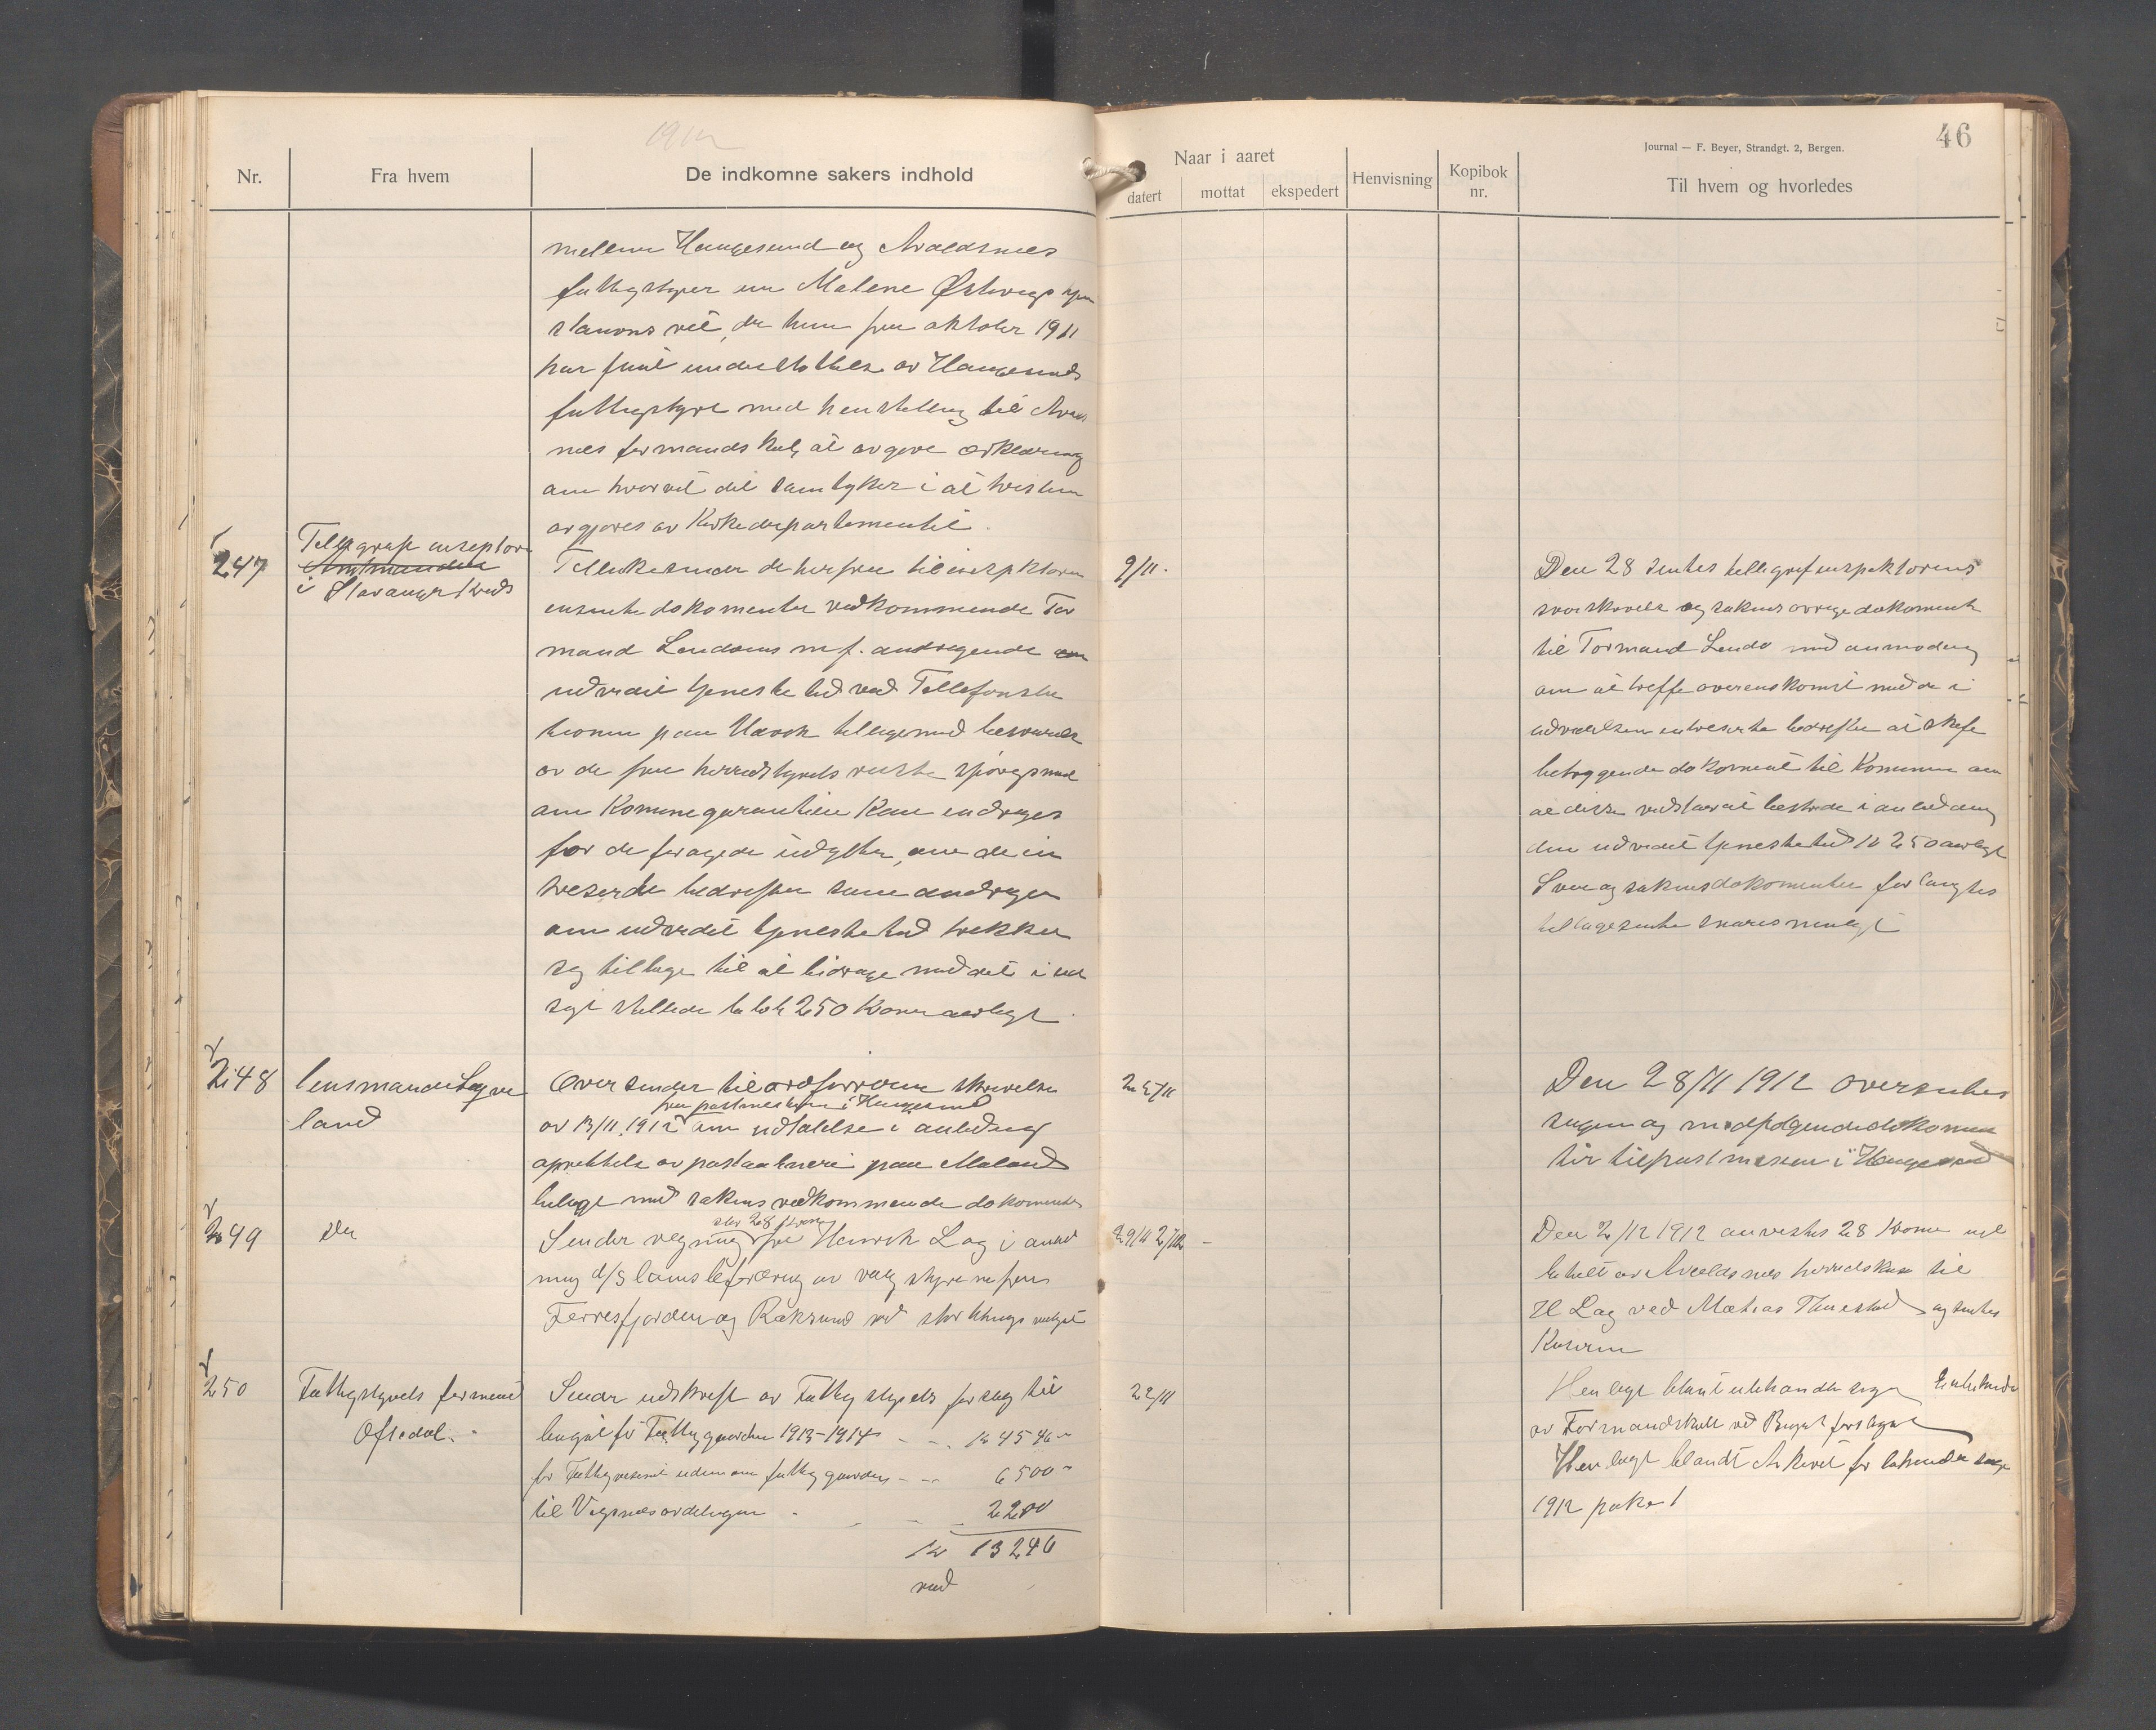 1912
Nr.
Fra hvem
De indkomne sakers indhold
mellem Haugesund og Avaldsnes
fattigstyrer om Malene Østvegs hjem
stavns ret, da hun fra oktober 1911
har faat understøttelse av Haugesunds
fattigstyre med henstilling til Avalds
nes formandskab at avgive erklæring
om hvorvit det samtyker i at tvisten
avgjøres av Kirkedepartementet.
247
Tellegraf inseptøren
Amtmanden
i Stavanger kreds
Tilbakesender de herfra til inspektøren
ensente dokomenter vedkommende Tor
mand Lendoens m. fl. andragende om
udvidet tjenestetid ved Tellefonsta
tionen paa Haavik tillegemed besvarelse
av de fra herredstyrets reiste spörgsmaal
om Komunegarantien kan endrages
for de foragede utgifter, om de in
treserte bedrifter som andrager
om udvidet tjenestetid trekker
seg tilbage til at bidrage med det i ud
sigt stillede beløb 250 Kroner aarlegt.
248
Lensmanden Sagve
land
Oversender til ordføreren skrivelse
fra postmesteren i Haugesund
av 13/11. 1912 om udtalelse i anledning
oprettelse av postaabneri paa Moland
belagt med sakens vedkommende dokomenter
249
Den
stor 28 kroner
Sender regning fra Henrik Lag i anled
ning d/s Lams befordring av valg styrerne fra
Førresfjorden og Røksund ved storthings valget
250
Fattigstyrets formand
Øfstedal.
Sender udskrift av Fattigstyrets forslag til
bugget for Fattiggaarden 1913-1914 - - kr 4546 -
for Fattigvesenet uden om fattiggaarden - - 6500 -
til Vegsnesavdelingen - - - 2200
kr 13246
ved
Naar i aaret
datert
mottat
ekspedert
Henvisning
Kopibok
nr.
Journal — F. Beyer, Strandgt. 2, Bergen.
Til hvem og hvorledes
46
9/11.
Den 28 sentes tellegrafinspektørens
svarskrivelse og sakens øvrige dokomenter
til Tormand Lendo med anmodning
om at treffe overenskomst med de i
udvidelsen intreserte bedrifter at skafe
betryggende dokoment til Komunen om
at disse vedstaar at bestride i anledning
den udvidet tjenestetid kr 250 aarlegt
Svar og sakens dokomenter forlangtes
tilbagesente snarest mulegt
25/11
Den 28/11 1912 oversentes
sagen og medfølgende dokomen
ter til postmesteren i Haugesund
29/11 2/12 -
Den 2/12 1912 anvistes 28 kroner ud
betalt av Avaldsnes herredskasse til
H Lag ved Matias Thuestad og sentes
Kaseren
22/11
Henlagt blant ubehandlede sager
av Formandskabet ved Buget forslaget
Henlagt blandt Arkivet for behandlede sager
1912 pake 1